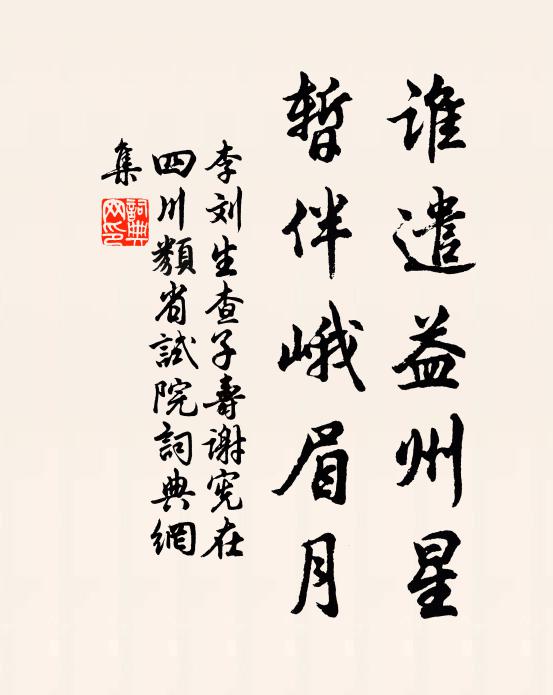 谁遣益州星
暂伴峨眉月
李刘生查子壽谢宪在
四川類省試院詞典網
集
詞典網印